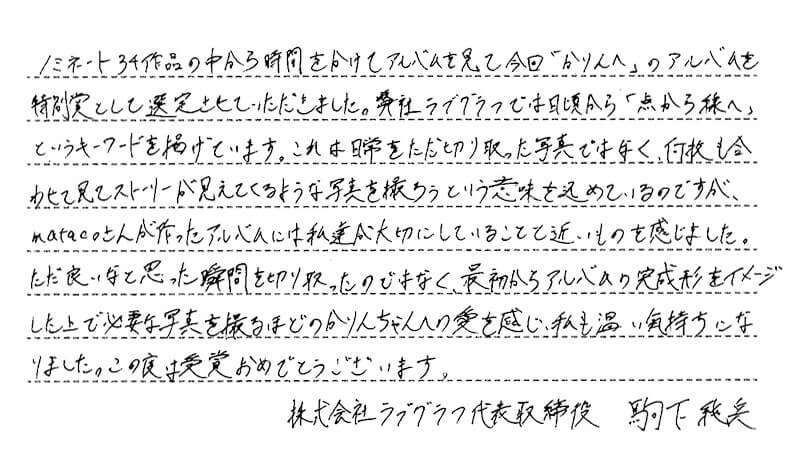 ノミネート34作品の中から時間をかけてアルバムを見て今回「かりんへ」のアルバムを
特別賞として選定させていただきました。弊社ラブグラフでは日頃から「点から線へ」
というキーワードを掲げています。これは日常をただ切り取った写真ではなく、何枚も合
わせて見てストーリーが見えてくるような写真を撮ろうという意味を込めているのですが、
matacoさんが作ったアルバムには私達が大切にしていることと近いものを感じました。
ただ良いなと思った瞬間を切り取ったのではなく、最初からアルバムの完成形をイメージ
した上で必要な写真を撮るほどのかりんちゃんへの愛を感じ、私も温い気持ちにな
りました。この度は受賞おめでとうございます。
株式会社ラブグラフ代表取締役 駒下純兵